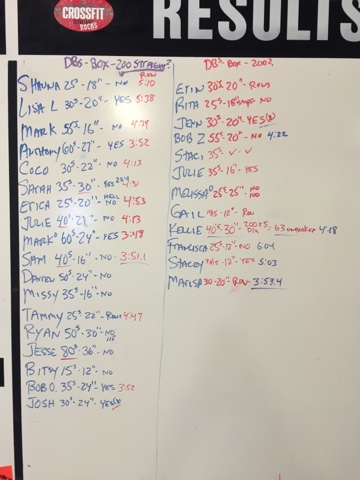 CROSSFIT
ROCKS
RESULTS
DBs - BOX - 200 STRAIGHT?
ROW
SHAUNA 25s - 18" - NO 5:10
LISA L 30s - 20" - YES 5:38
MARK 55s 16" - NO 4:29
ANTHONY 60s - 27" - YES 3:52
COCO 30s - 22" - NO 4:13
SARAH 35s - 30" YES 4:31
ERICA 25s - 20" - NO 4:53
JULIE 40s - 21" - NO 4:13
MARK 60s - 24" - YES 3:48
SAM 40s - 16" - NO - 3:51.1
DANIEL 50s - 24" - NO
MISSY 35s - 16" - NO
TAMMY 25s - 20" - ROW 4:47
RYAN 50s - 30" - NO
JESSE 80s - 36" - NO
BITSY 15s - 12" - NO
BOB O. 35s - 24" - YES 3:52
JOSH 30s - 24" - YES
DBs BOX - 200?
ERIN 30s - 20" - ROW
RITA 25s - NO
JENN 30s - 20" YES
BOB Z 55s - 20" - NO 4:22
STACI 35s - ✓ - ✓
JULIE 35s - 16" - YES
MELISSA 25s 25" NO NO
GAIL 12" - ROW
KELLIE 40s - 30" - 63 UNBROKEN 4:18
FRANCISCA 25s - 12" - NO 6:04
STACEY 12" - YES 5:03
MARISA 30 - 20" ROW - 3:59.4